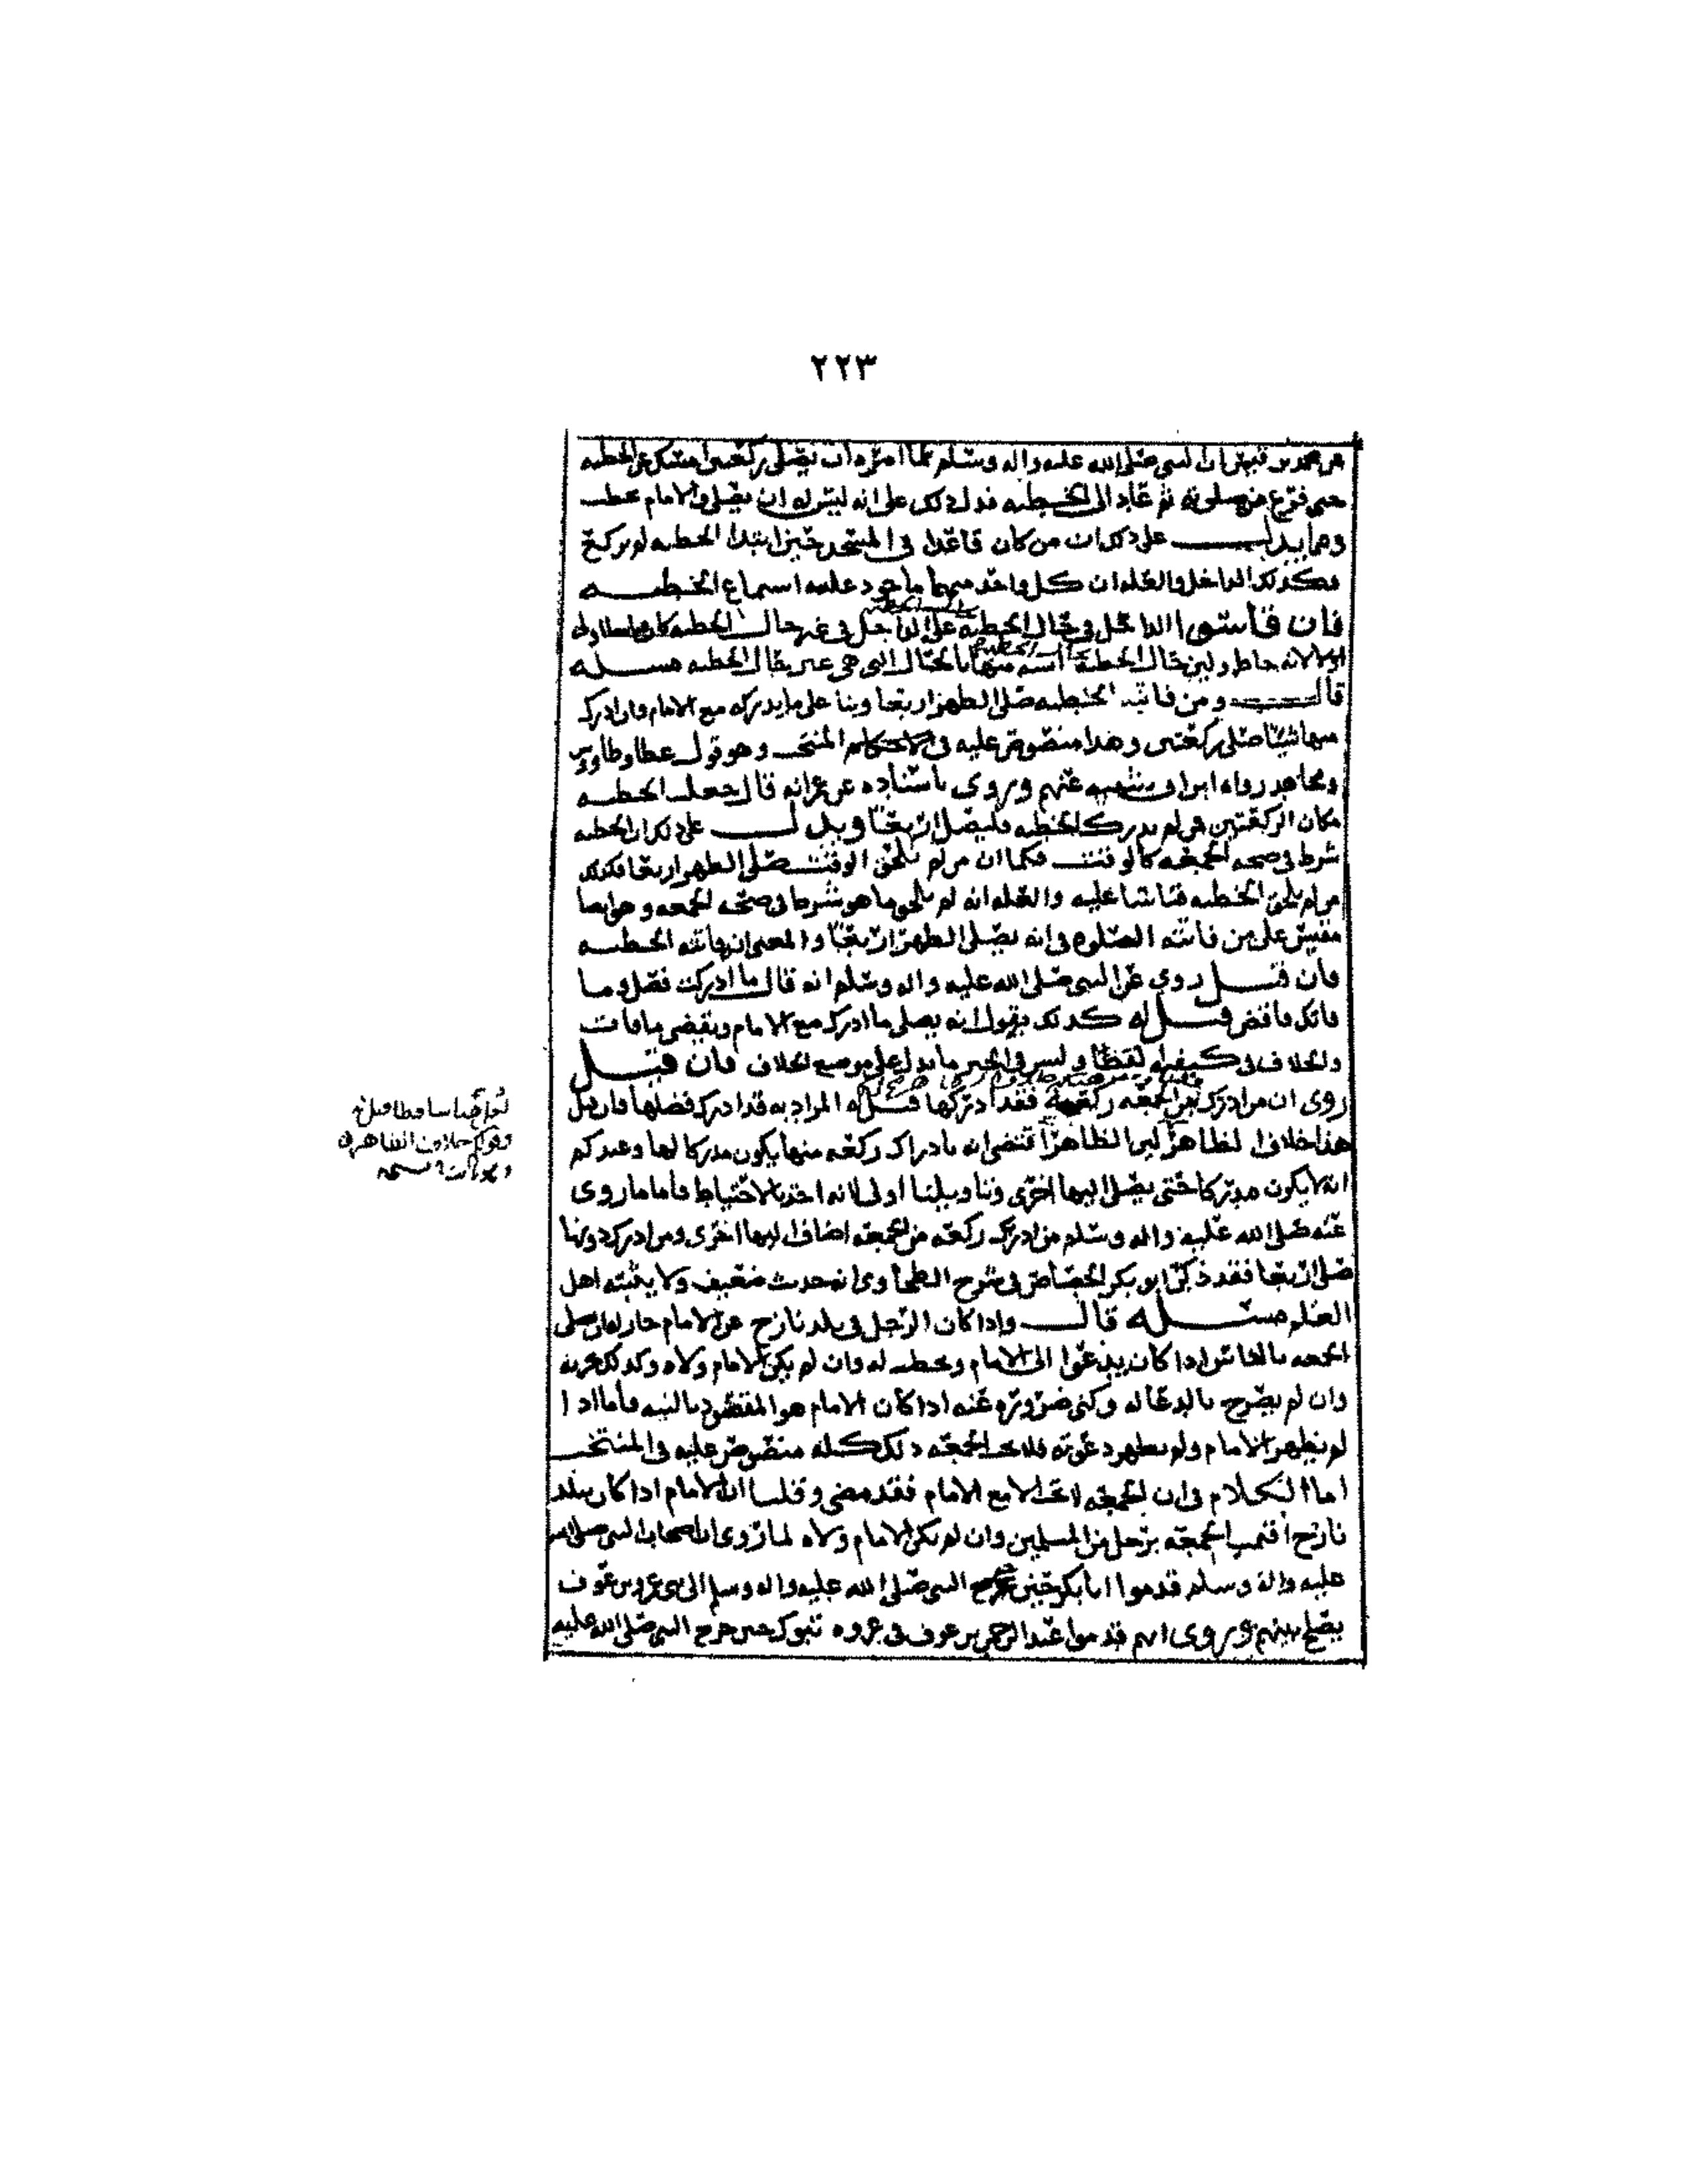 ٢٢٣
عن محمد بن قيس ان النبي صلى الله عليه واله وسلم لما امره ان يصلي ركعتين امسك عن الخطبه
حتى فرغ من صلوته ثم عاد الى الخطبه فدل ذلك على انه ليس له ان يصلي والامام يخطب
ومما يدل على ذلك ان من كان قاعدا في المسجد حين ابتدا الخطبه لم يركع
فكذلك الداخل والعله ان كل واحد منهما ماخوذ عليه استماع الخطبه
فان قاسوا الداخل في حال الخطبه على الداخل في غير حال الخطبه كان
لانه خاطر وبين حال الخطبه اشبه منها بالحال التي هي غير حال الخطبه مسله
قال ومن فاتته الخطبه صلى الظهر اربعا وبنا على ما يدركه مع الامام فان ادرك
منها شيئا صلى ركعتين وهذا منصوص عليه في الاحكام المنتخب وهو قول عطا وطاووس
ومجاهد رواه ابن ابي شيبه عنهم وروى باسناده عن عمر انه قال جعلت الخطبه
مكان الركعتين فمن لم يدرك الخطبه فليصل اربعا ويدل على ذلك ان الخطبه
شرط في صحه الجمعه كالوقت فكما ان من لم يلحق الوقت صلى الظهر اربعا فكذلك
من لم يلحق الخطبه قياسا عليه والعله انه لم يلحق ما هو شرط في صحه الجمعه وهو ايضا
مقيس على من فاتته الصلوه في انه يصلي الظهر اربعا والمعنى انه فاتته الخطبه
فان قيل روي عن النبي صلى الله عليه واله وسلم انه قال ما ادركت فصل وما
فاتك فاقض قيل له كذلك نقول انه يصلي ما ادرك مع الامام ويقضي ما فات
والخلاف في كيفيه لفظا وليس في الخبر ما يدل على موضع الخلاف فان قيل
روى ان من ادرك من الجمعه ركعه فقد ادركها قيل له المراد به قد ادرك فضلها فان قيل
هذا خلاف الظاهر لان الظاهر اقتضى انه بادراك ركعه منها يكون مدركا لها وعندكم
انه لا يكون مدركا حتى يصلي اليها اخرى وتاويلنا اولى لانه اخذ بالاحتياط فاما ما روى
عنه صلى الله عليه واله وسلم من ادرك ركعه من الجمعه اضاف اليها اخرى ومن ادرك دونها
صلى اربعا فقد ذكر ابو بكر الجصاص في شرح الطحاوي انه حديث ضعيف ولا يثبته اهل
العلم مسله قال واذا كان الرجل في بلد نازح عن الامام جاز له ان يصلي
الجمعه بالناس اذا كان يدعوا الى الامام ويخطب له وان لم يكن الامام ولاه وكذلك يجزيه
وان لم يصرح بالدعا له وكنى ضروره عنه اذا كان الامام هو المقصود بالنيه فاما اذا
لم يظهر الامام ولم يظهر دعوته فلا تجب الجمعه ذلك كله منصوص عليه في المنتخب
اما الكلام في ان الجمعه لا تجب الا مع الامام فقد مضى وقلنا ان الامام اذا كان ببلد
نازح اقيمت الجمعه برجل من المسلمين وان لم يكن الامام ولاه لما روى ان اصحاب النبي صلى الله
عليه واله وسلم قدموا ابا بكر حين خرج النبي صلى الله عليه واله وسلم الى بني عمرو بن عوف
يصلح بينهم وروى انهم قدموا عبد الرحمن بن عوف في غزوه تبوك حين خرج النبي صلى الله عليه